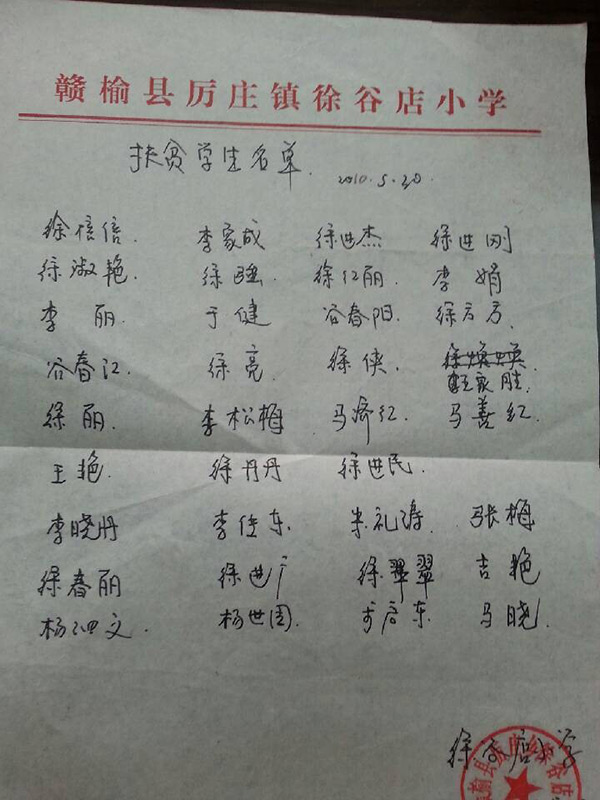 赣榆县厉庄镇徐谷店小学
扶贫学生名单. 2010.5.20.
徐倍倍. 李家成 徐进杰 徐进刚
徐淑艳. 徐 徐红丽. 李娟
李丽. 于健 谷春阳. 徐方方.
谷春江. 徐亮. 徐侠. 徐焕焕.
家胜.
徐丽. 李松梅 马济红. 马善红.
王艳. 徐丹丹 徐进民.
李晓丹 李佳东 朱礼涛. 张梅
徐春丽 徐进广 徐翠翠 吉艳
杨泗文. 杨世团. 启东 马晓.
徐谷店小学